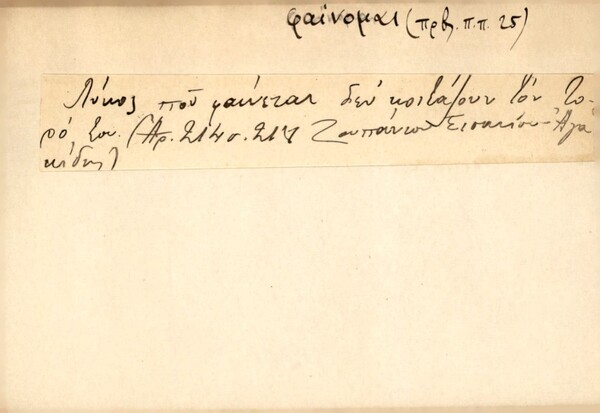 φαίνομαι (πρβ. π.π. 25)
Λύκος ποῦ φαίνεται δεν κοιτάζουν τὸν το-
ρό του. (Αρ. 214 σ. 217 Ζουπάνιον Σισανίου - Αγα
κίδης)